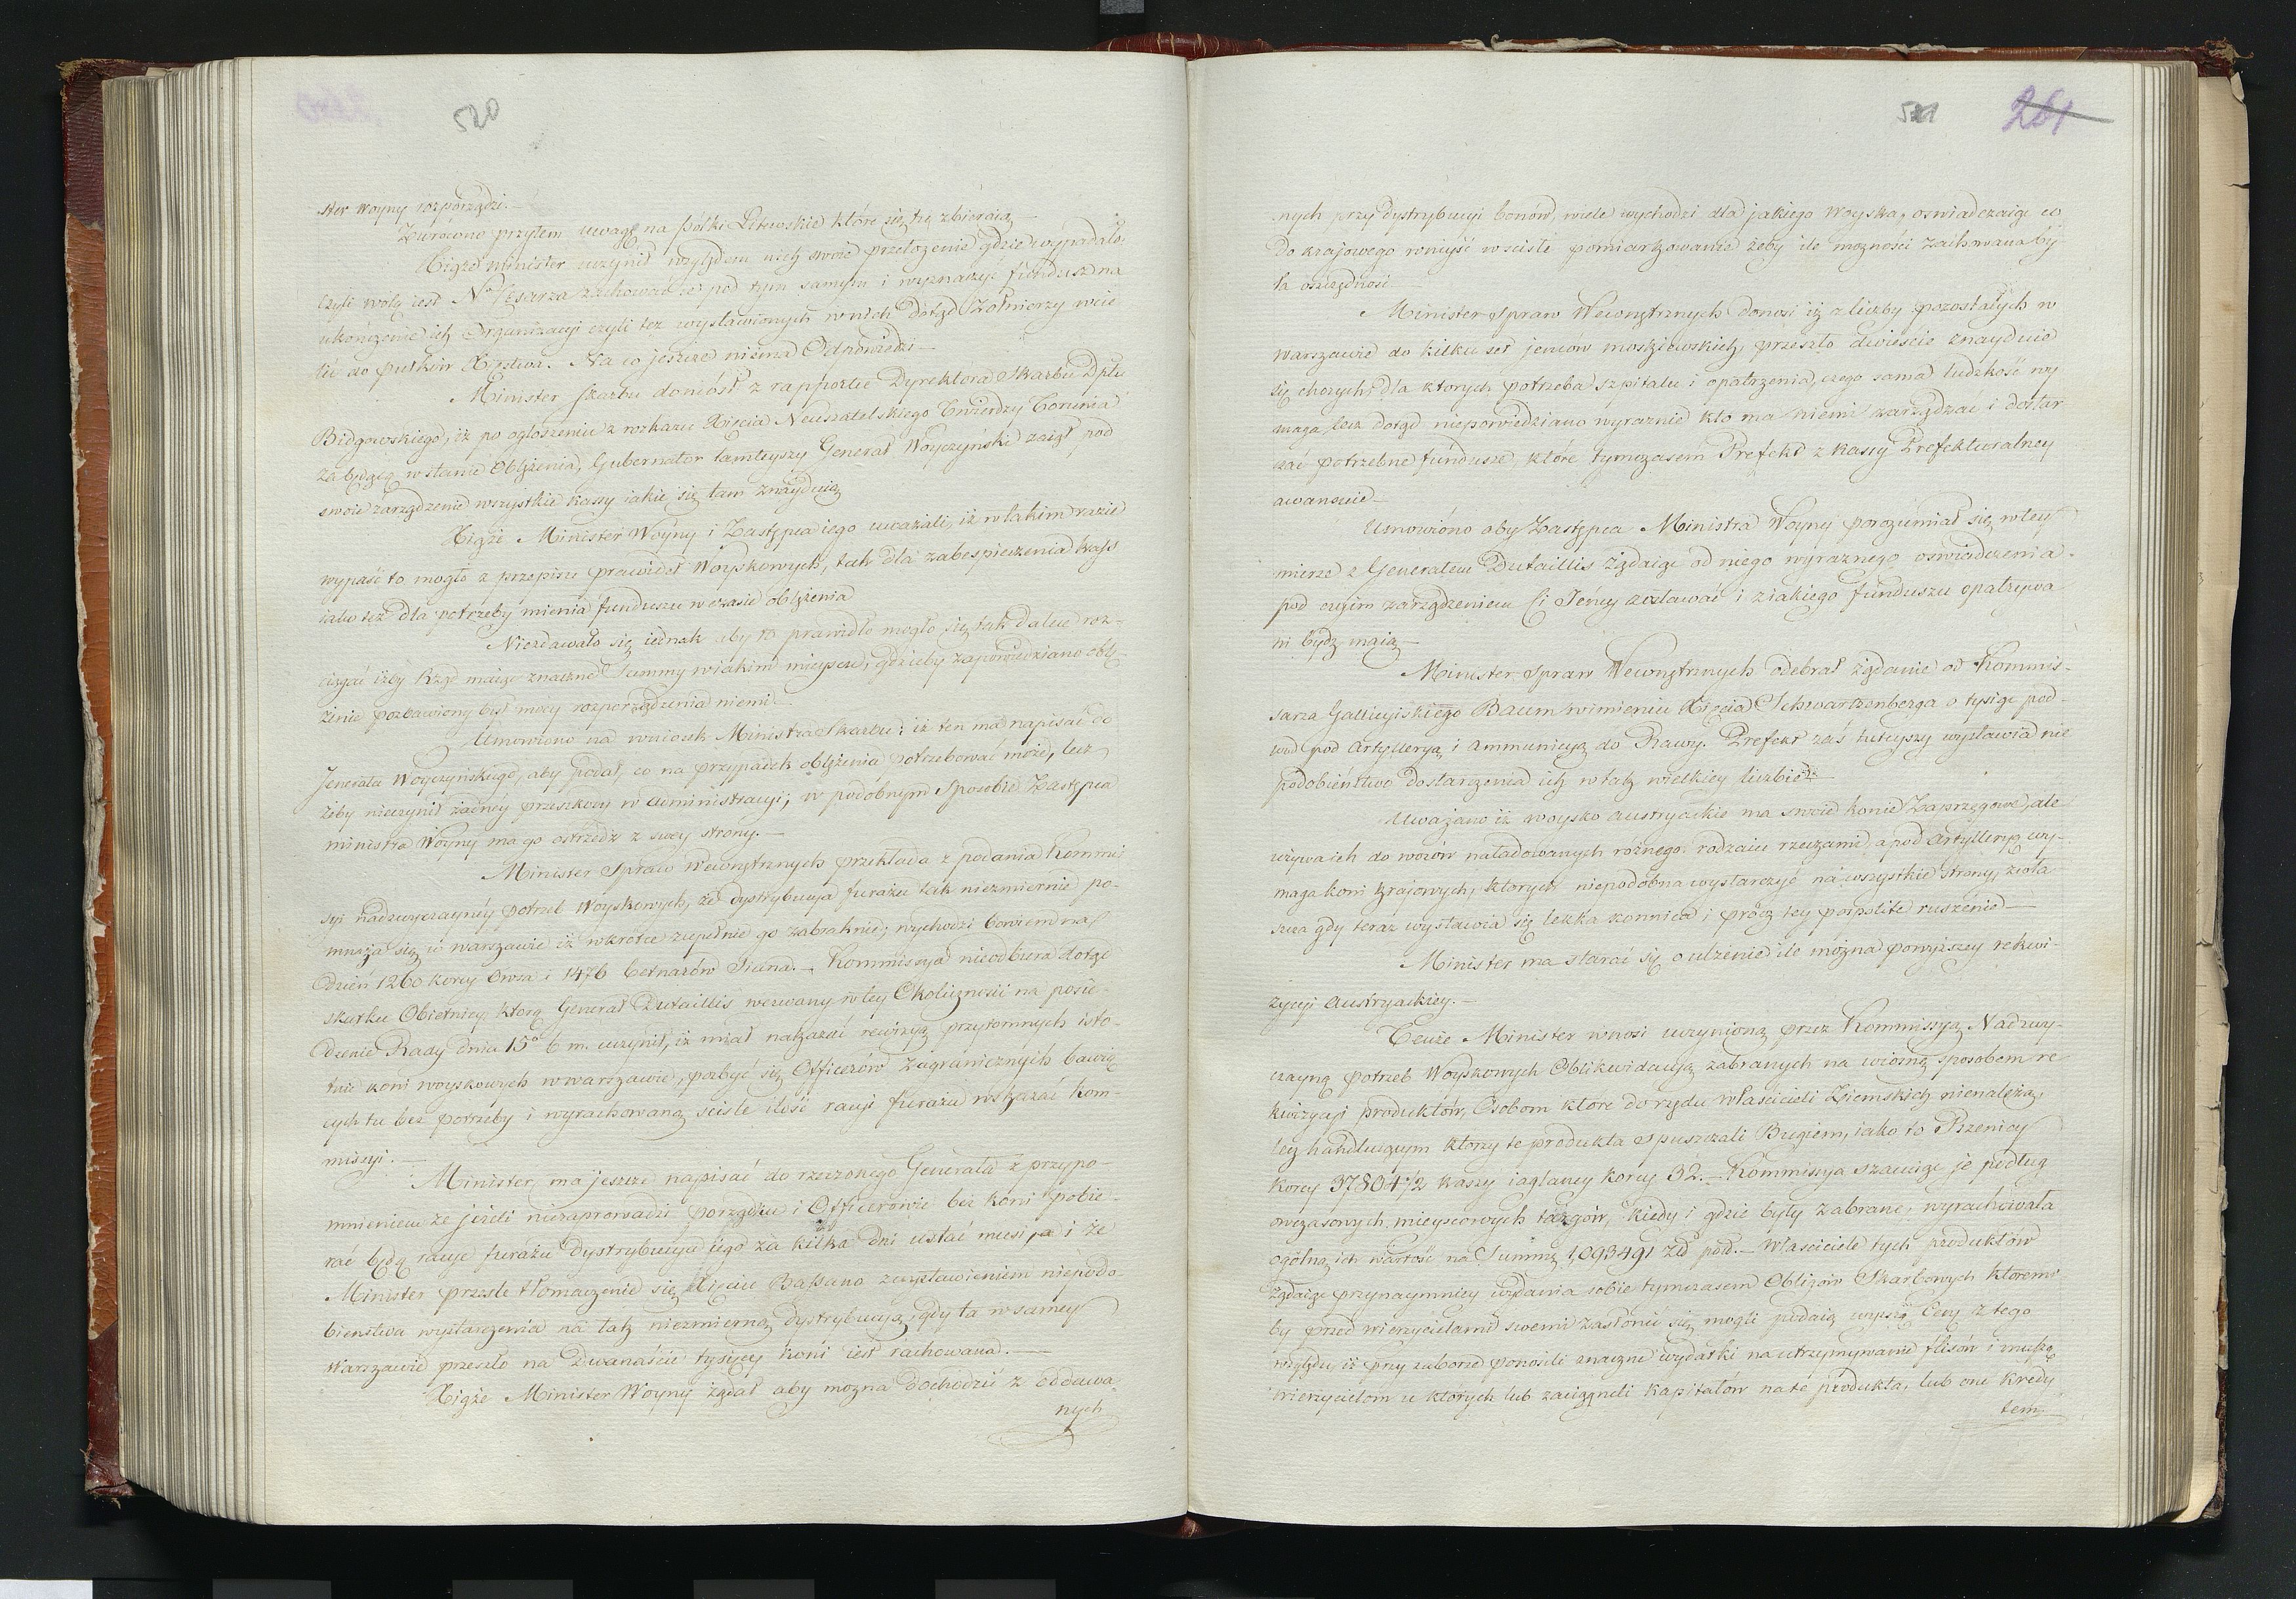 520
ster Woyny rozporządzi.—
Zwrócono przytem uwagę na pólki Litewskie które się tu zbieraią
Xiąże minister uczynił względem nich swoie przełożenie gdzie wypadało:
czyli wolą iest Nº Cesarza zachować ie pod tym samym i wyznaczyć fundusz na
ukończenie ich Organizacyi czyli też wystawionych w nich dotąd Żołnierzy wcie
lić do pułków Xięstwa. Na co jeszcze niéma Odpowiedzi—
Minister Skarbu doniósł z rapportu Dyrektora Skarbu Dptu
Bidgowskiego, iż po ogłoszeniu z rozkazu Xięcia Neuszatelskiego Twierdzy Torunia
za będącą w stanie Oblężenia, Gubernator tamteyszy Generał Woyczyński zaiął pod
swoie zarządzenie wszystkie kassy iakie się tam znayduią
Xiąże Minister Woyny i Zastępca iego uważali, iż w takim razie
wypaść to mogło z przepisu prawideł Woyskowych, tak dla zabespieczenia kass
iako też dla potrzeby mienia funduszu w czasie oblężenia
Niezdawało się iednak aby to prawidło mogło się tak dalece roz-
ciągać iżby Rząd maiąc znaczne Summy w iakim mieyscu, gdzieby zapowiedziano oblę-
żenie pozbawiony był mocy rozporządzenia niemi.—
Umówiono na wniosek Ministra Skarbu: iż ten ma napisać do
Jenerała Woyczyńskiego, aby podał, co na przypadek oblężenia potrzebować może, lecz
żeby nieczynił żadney przeszkody w administracyi; w podobnym Sposobie Zastępca
ministra Woyny ma go ostrzedz z swey strony.—
Minister Spraw Wewnętrznych przekłada z podania Kommi
syi nadzwyczayney potrzeb Woyskowych, że dystrybucya furażu tak niezmiernie po-
mnaża się w Warszawie iż wkrótce zupełnie go zabraknie; wychodzi bowiem na
dzień 1260 korcy Owsa i 1476 Cetnarów Siana.— Kommissya nieodbiera dotąd
skutku Obietnicy którą Generał Dutaillis wezwany w tey Okoliczności na posie-
dzenie Rady dnia 15º b m. uczynił, iż miał nakazać rewizyą przytomnych isto-
tnie koni woyskowych w Warszawie, pozbyć się Officerów Zagranicznych bawią
cych tu bez potrzeby i wyrachowaną sciśle ilość racyi furażu wskazać Kom-
missyi.—
Minister, ma jeszcze napisać do rzeczonego Generała z przypo-
mnieniem że jeżeli niezaprowadzi porządku i Officerowie bez koni pobie-
rać będą racye furażu Dystrybucya iego za kilka dni ustać musi i że
Minister prześle tłomaczenie się Xięciu Bassano z wystawieniem niepodo-
bieństwa wystarczenia na tak niezmierną dystrybucyą, gdy ta w samey
Warszawie przeszło na Dwanaście tysięcy koni iest rachowana.—
Xiąże Minister Woyny żądał aby można dochodzić z oddawa
nych
521 261
nych przy dystrybucyi bonów, wiele wychodzi dla jakiego woyska, oswiadczaiąc co
do krajowego weyść w scisłe pomiarkowanie żeby ile możności zachowana by
ła oszczędność
Minister Spraw Wewnętrznych donosi iż z liczby pozostałych w
warszawie do kilku set jeńców moskiewskich, przeszło dwieście znayduie
się chorych, dla których potrzeba szpitalu i opatrzenia, czego sama ludzkość wy
maga lecz dotąd niepowiedziano wyraznie kto ma niemi zarządzać i dostar
czać potrzebne fundusze, które tymczasem Prefekt z kassy Prefekturalney
awansuie—
Umowiono aby Zastępca Ministra Woyny porozumiał się w tey
mierze z Generałem Dutaillis żądaiąc od niego wyraznego oświadczenia.
pod czyim zarządzeniem Ci Jeńcy zostawać i z iakiego funduszu opatrywa
ni bydź maią—
Minister Spraw Wewnętrznych odebrał żądanie od Kommis-
sarza Gallicyiskiego Baum w imieniu Xięcia Schwartzenberga o tysiąc pod-
wód pod artylleryą i ammunicyą do Rawy. Prefekt zaś tuteyszy wystawia nie
podobieństwo dostarczenia ich w tak wielkiey liczbie.—
Uważano iż woysko austryackie ma swoie konie Zaprzęgowe, ale
używa ich do wozów naładowanych roznego rodzaiu rzeczami, a pod artylleryą wy-
maga koni krajowych, których niepodobna wystarczyć na wszystkie strony, zwła
szcza gdy teraz wystawia się lekka konnica i prócz tey pospolite ruszenie—
Minister ma starać się o ulżenie ile można powyższey rekwi-
zycyi austryackiey.—
Tenże Minister wnosi uczynioną przez Kommissyą Nadzwy-
czayną potrzeb Woyskowych Oblikwidacyą zabranych na wiosnę sposobem re
kwizycyi produktów, Osobom które do rzędu Właścicieli Ziemskich nienależą,
lecz handluiącym którzy te produkta spuszczali Bugiem, iako to Pszenicy
korcy 37804 1/2 kaszy iaglaney korcy 32.— Kommissya szacuiąc je podług
owczasowych mieyscowych targów, kiedy i gdzie były zabrane, wyrachowała
ogólną ich wartość na Summę 1,093491 Złł pol.— Właściciele tych produktów
żądaiąc przynaymniey wydania sobie tymczasem Obligów Skarbowych któremi
by przed wierzycielami swemi zasłonić się mogli podaią wyższe Ceny z tego
względu iż przy zaborze ponosili znaczne wydatki na utrzymywanie flisów i muszą
wierzycielom u których lub zaciągneli kapitałów na te produkta, lub one kredy
tem